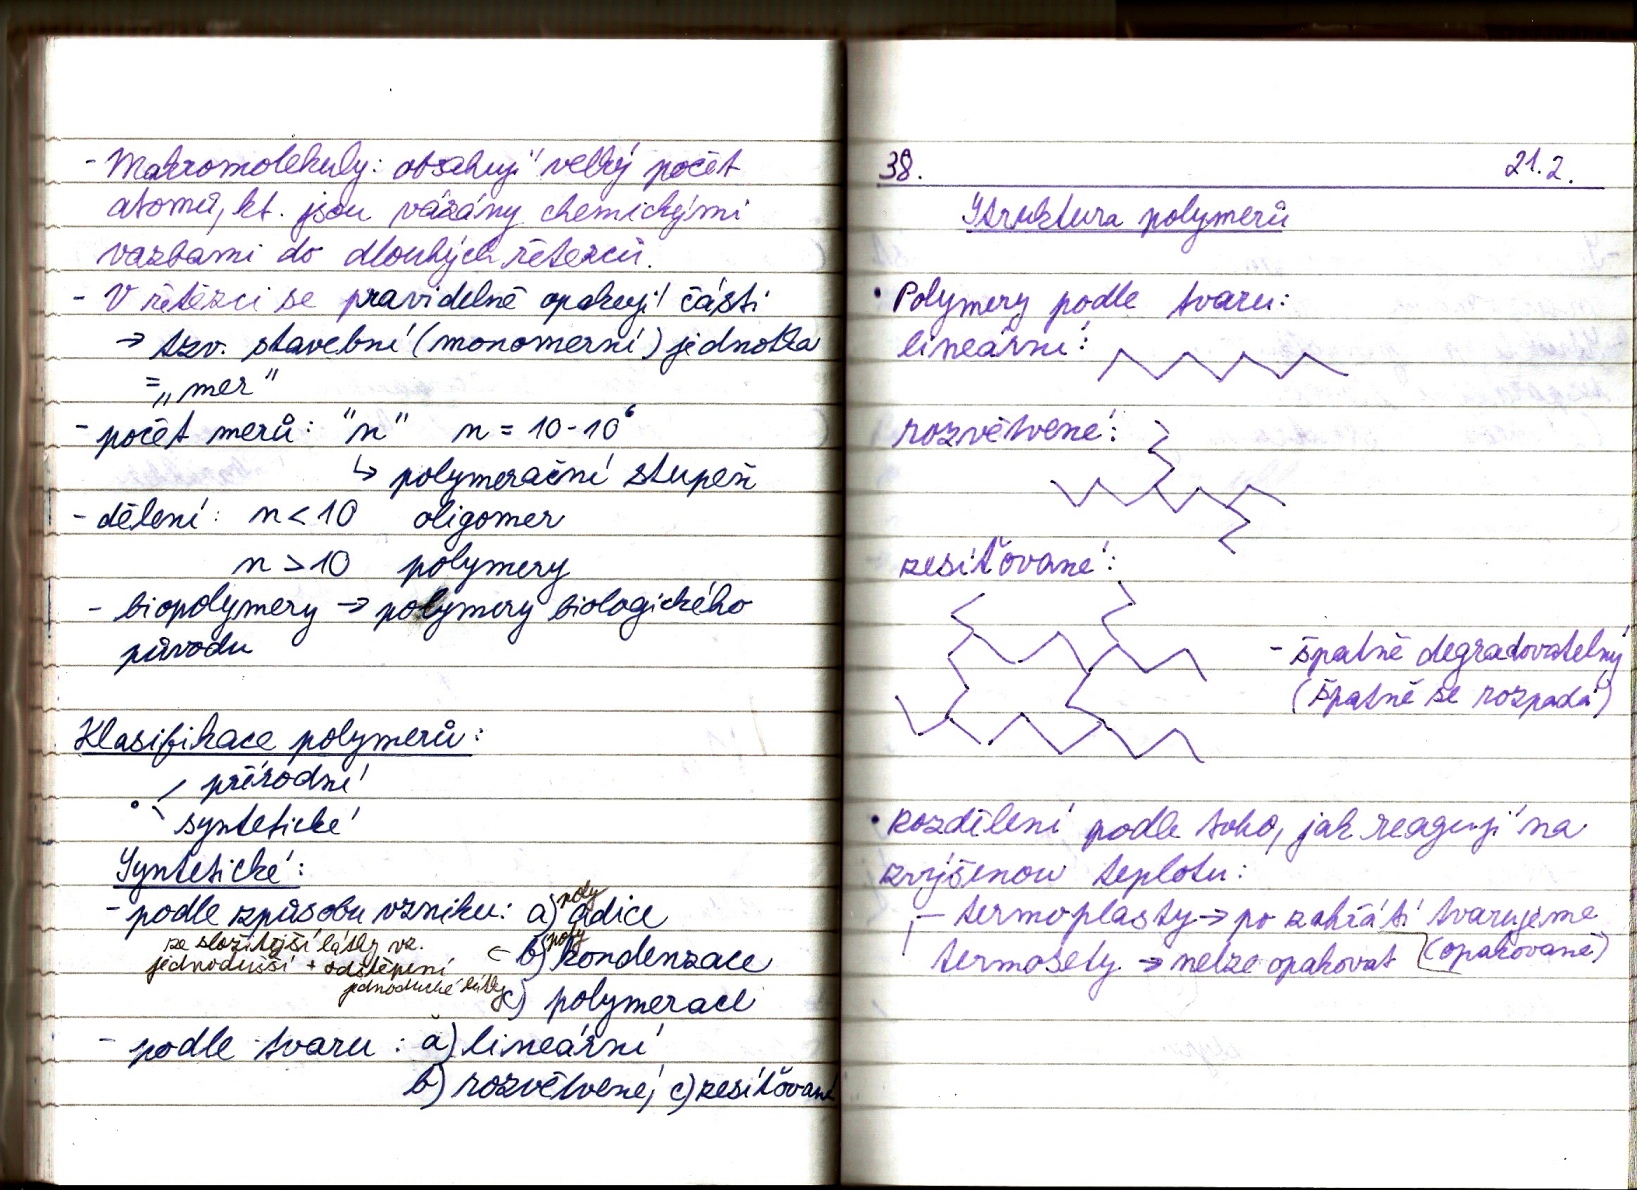 - Makromolekuly: obsahují velký počet
atomů, kt. jsou vázány chemickými
vazbami do dlouhých řetězců.
- V řetězci se pravidelně opakují části
→ tzv. stavební (monomerní) jednotka
= „mer"
- počet merů: "n" n = 10 - 10⁶
↳ polymerační stupeň
- dělení: n < 10 oligomer
n > 10 polymery
- biopolymery → polymery biologického
původu
Klasifikace polymerů:
přírodní
syntetické
Syntetické:
- podle způsobu vzniku: a) polyadice
ze složitější látky vz.
jednodušší + odštěpení
jednoduché látky
b) polykondenzace
c) polymerace
- podle tvaru: a) lineární
b) rozvětvené, c) zesíťované
38. 21.2.
Struktura polymerů
• Polymery podle tvaru:
lineární:
rozvětvené:
zesíťované:
- špatně degradovatelný
(špatně se rozpadá)
• Rozdělení podle toho, jak reagují na
zvýšenou teplotu:
- termoplasty → po zahřátí tvarujeme
(opakovaně)
termosety → nelze opakovat